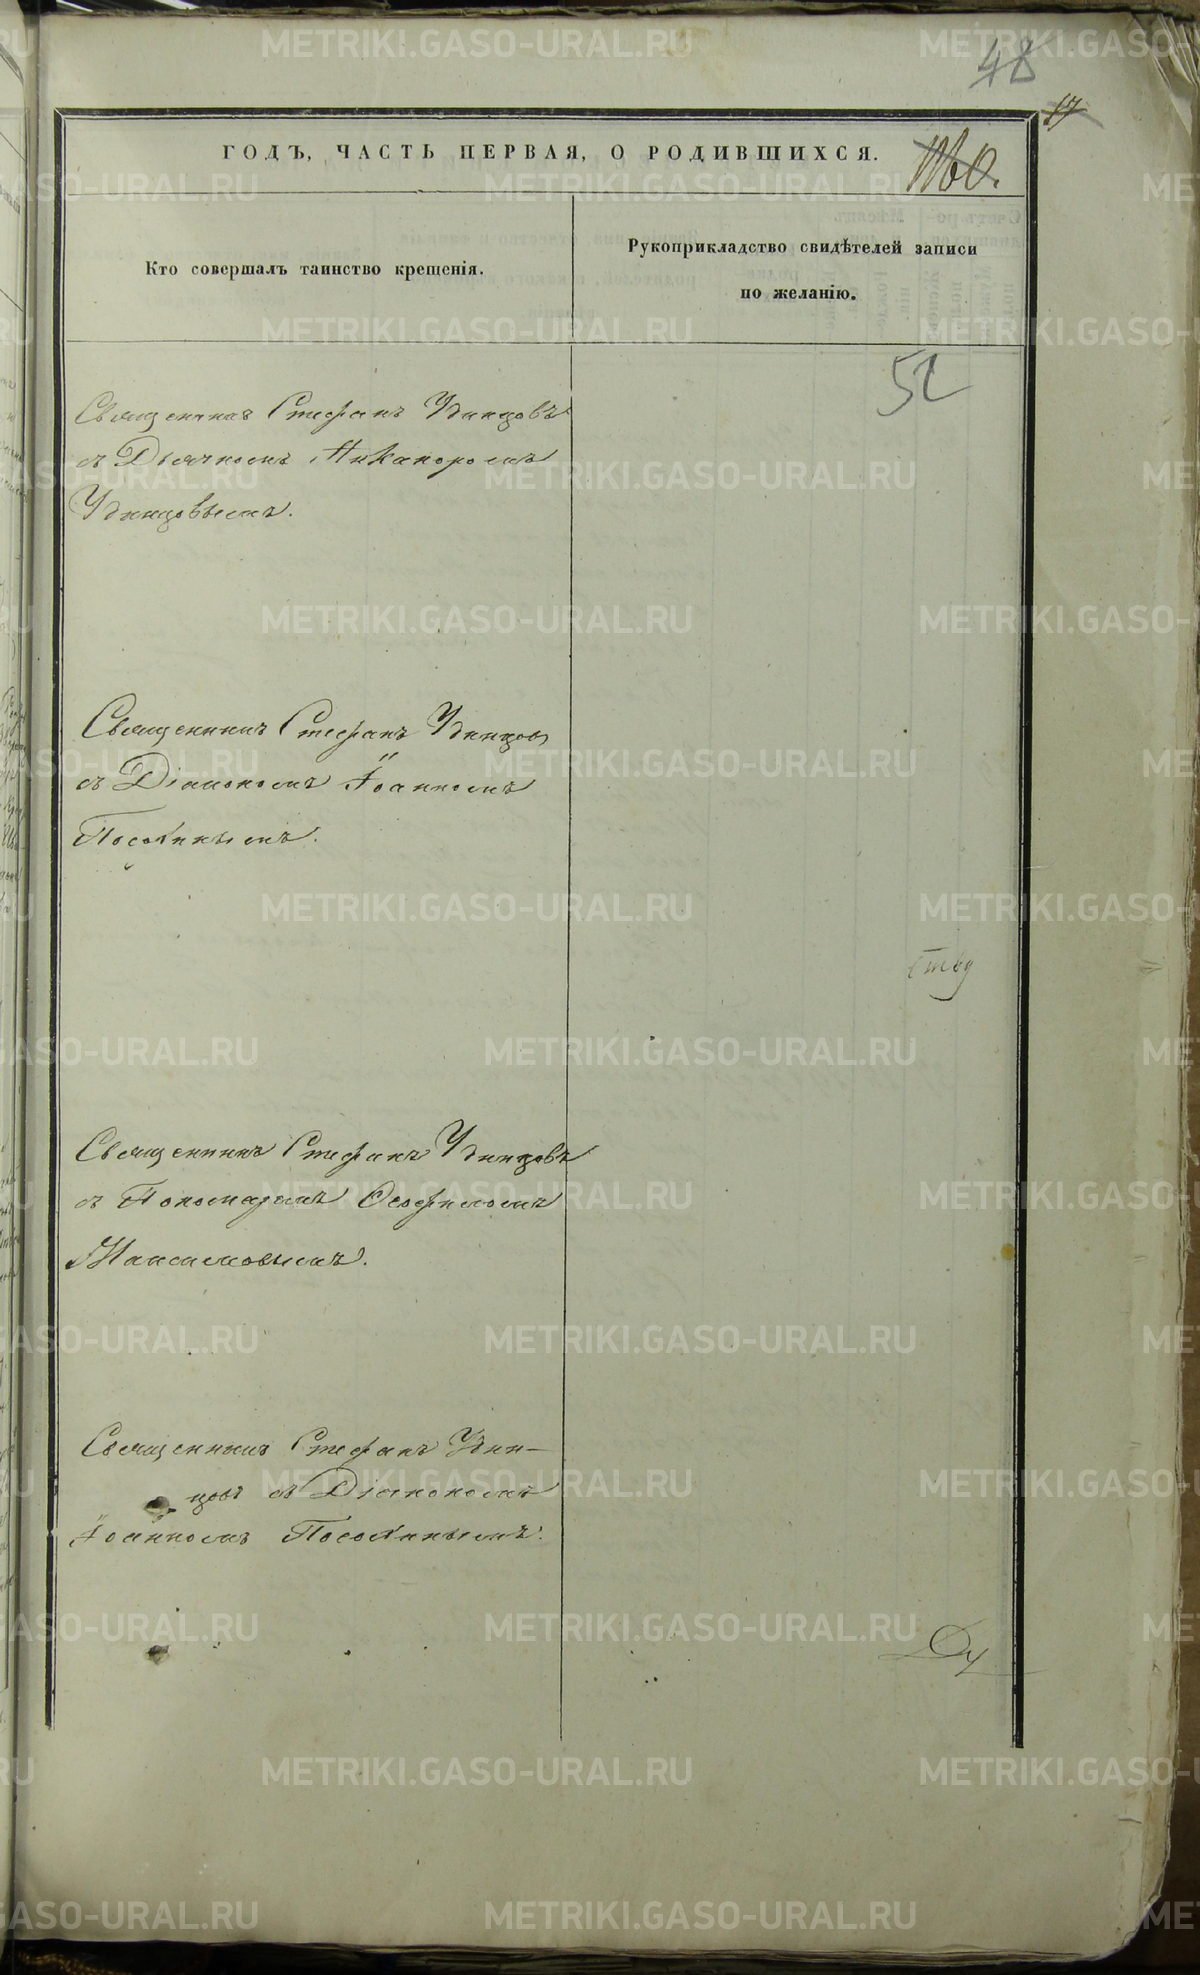 48
17
ГОДЪ, ЧАСТЬ ПЕРВАЯ, О РОДИВШИХСЯ.
Кто совершалъ таинство крещенія.
Рукоприкладство свидѣтелей записи
по желанію.
52
Священникъ Стефанъ Удинцовъ
съ Дьячкомъ Никаноромъ
Удинцовымъ.
Священникъ Стефанъ Удинцовъ
съ Діакономъ Іоанномъ
ству
Священникъ Стефанъ Удинцовъ
съ Пономаремъ Ѳеофиломъ
Максимовымъ.
Священникъ Стефанъ Удин-
цовъ съ Діакономъ
Іоанномъ
METRIKI.GASO-URAL.RU